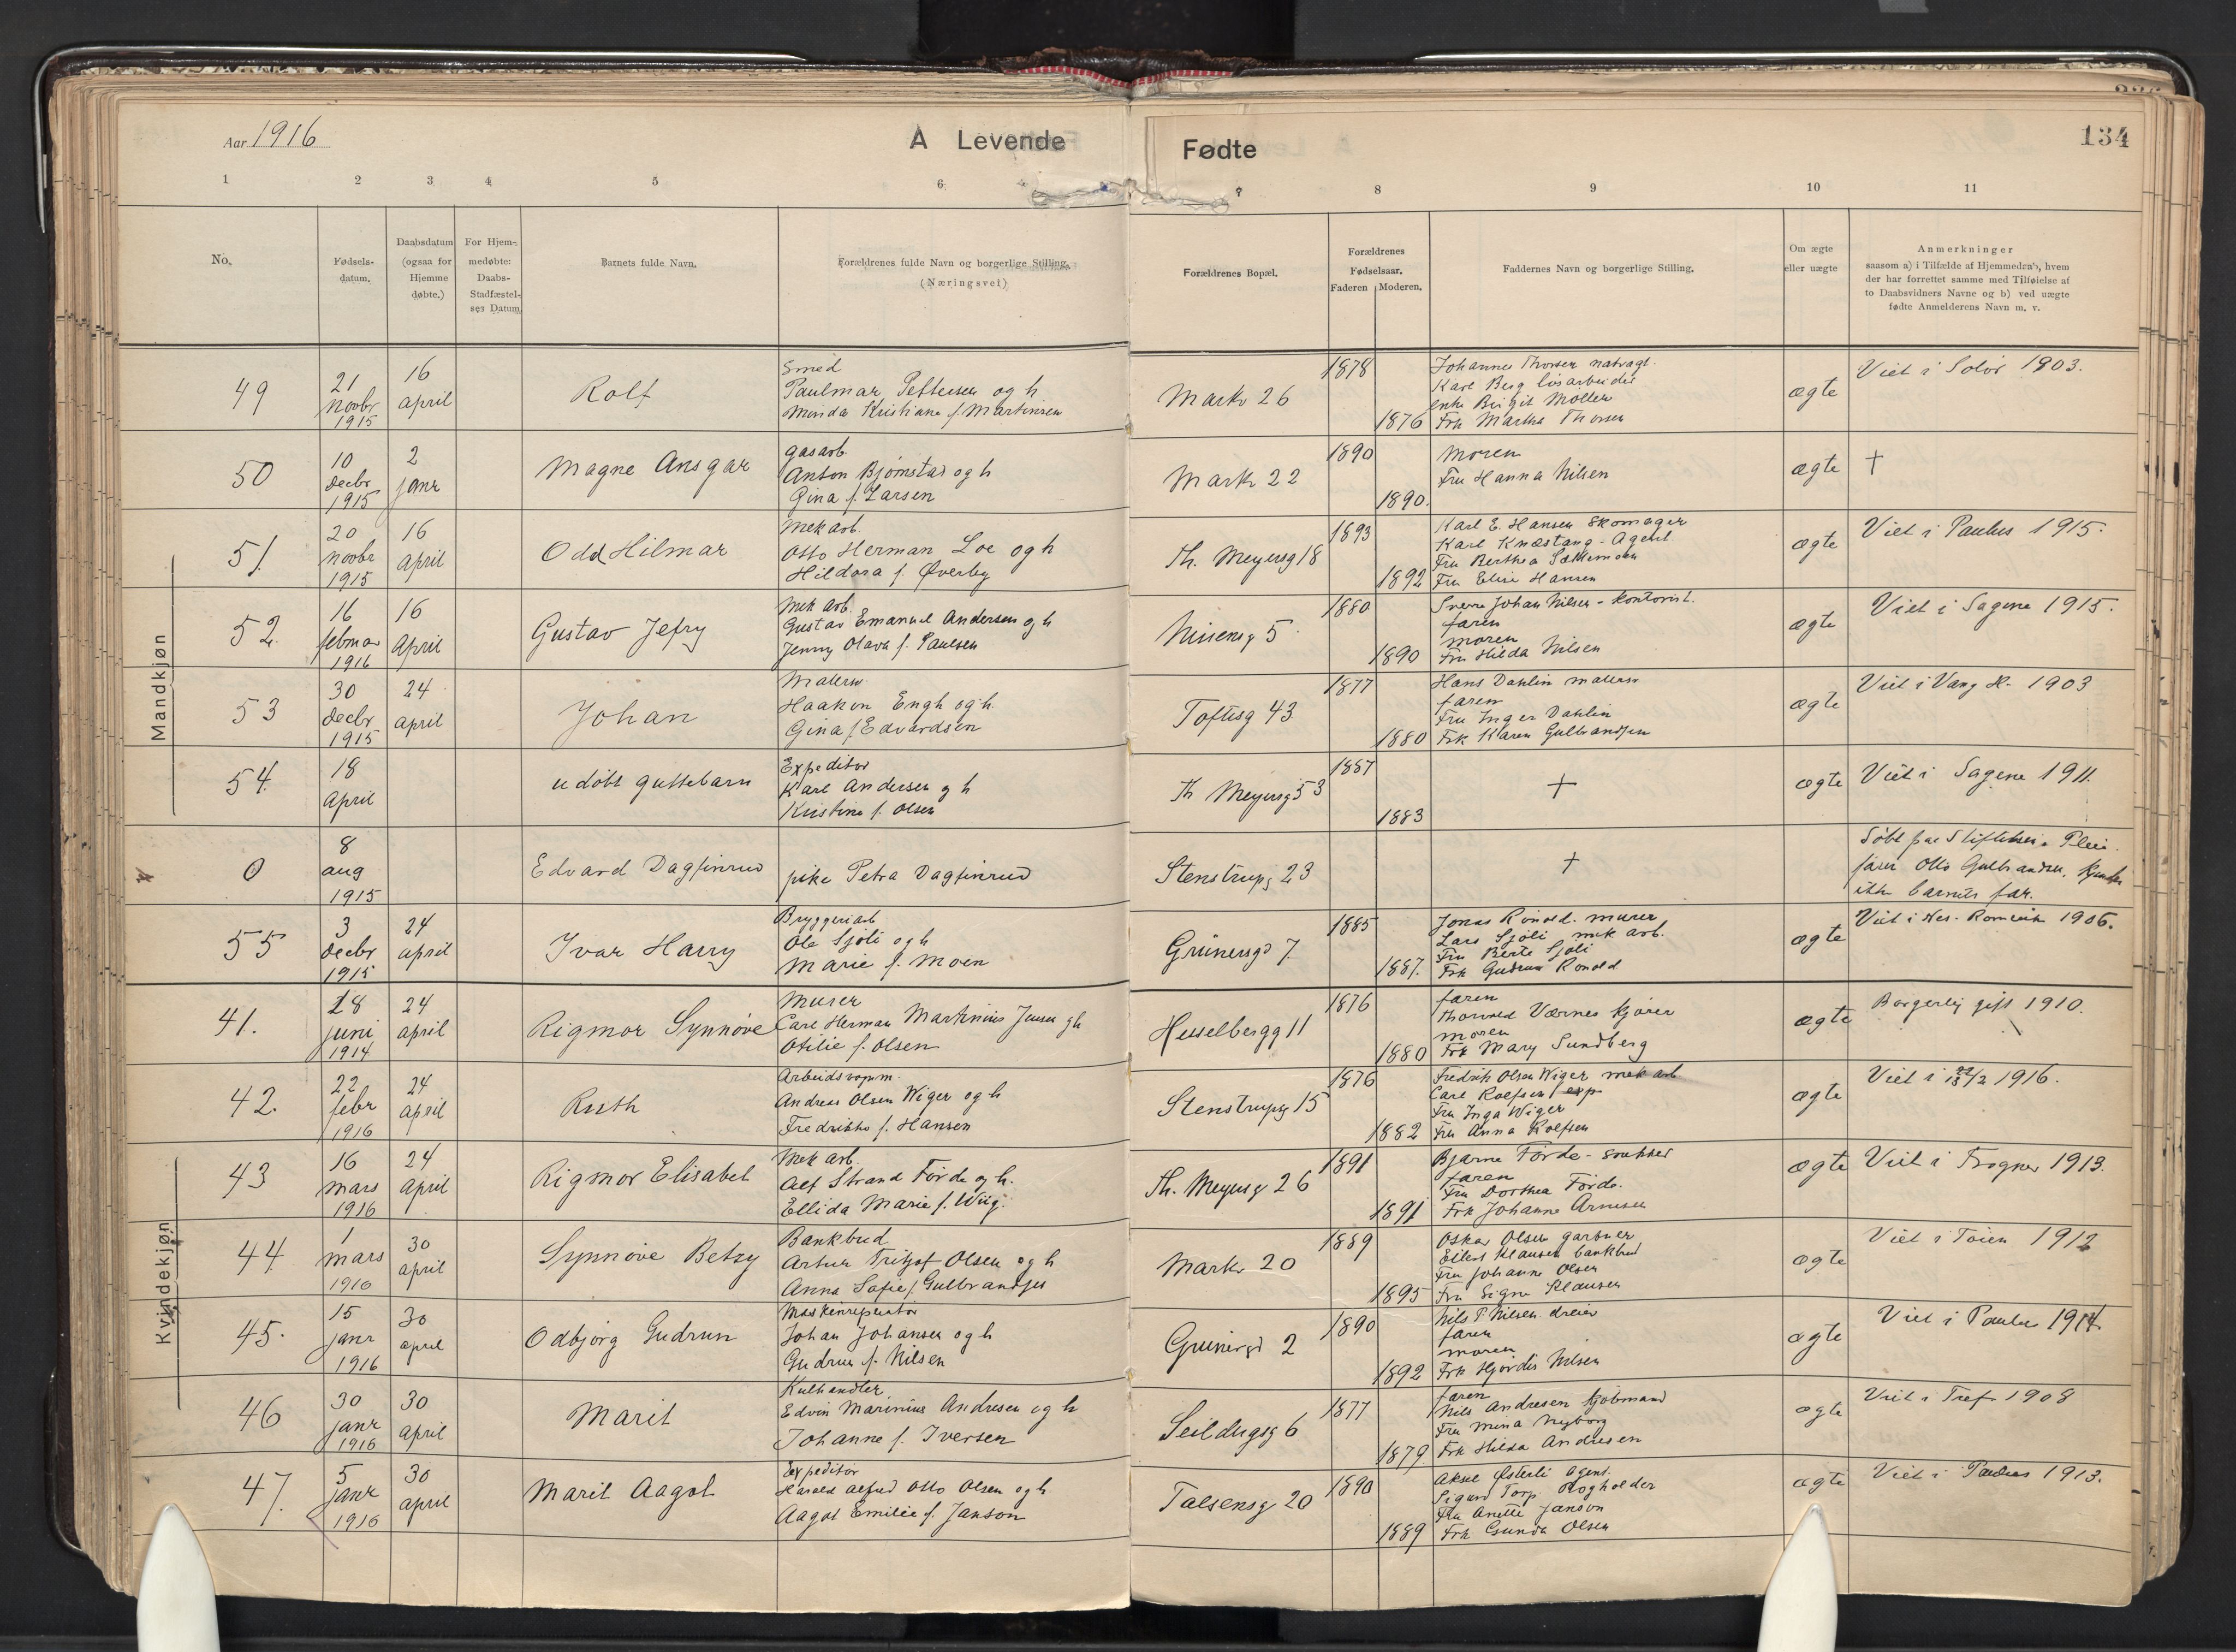 Aar 1916
A Levende
Fødte
134
1 2 3 4 5 6 7 8 9 10 11
No.
Fødsels-
datum.
Daabsdatum
(ogsaa for
Hjemme
døbte.)
For Hjem-
medøbte:
Daabs-
Stadfæstel-
ses Datum
Barnets fulde Navn.
Forældrenes fulde Navn og borgerlige Stilling.
(Næringsvei)
Forældrenes Bopæl.
Forældrenes
Fødselsaar.
Faderen Moderen.
Faddernes Navn og borgerlige Stilling.
Om ægte
eller uægte
Anmerkninger
saasom a) i Tilfælde af Hjemmedaab, hvem
der har forrettet samme med Tilføielse af
to Daabsvidners Navne og b) ved uægte
fødte Anmelderens Navn m. v.
Mandkjøn
49
21
novbr
1915
16
april
Rolf
Smed
Paulmar Pettersen og h
Minda Kristiane f. Martinsen
Markv 26
1878
1876
Johannes Thorsen natvagt.
Karl Berg løsarbeider
enke Birgit Møller
Frk Martha Thorsen
ægte
Viet i Solør 1903.
50
10
decbr
1915
2
janr
Magne Ansgar
gasarb
Anton Bjørnstad og h
Gina f. Larsen
Markv 22
1890
1890.
Moren
Fru Hanna Nilsen
ægte
†
51.
20
novbr
1915
16
april
Odd Hilmar
Mek arb.
Otto Herman Loe og h
Hildora f. Øverby
Th. Meyersg 18
1893
1892
Karl E. Hansen Skomager
Karl Knæstang - Agent
Fru Berthea
Fru Elise Hansen
ægte
Viet i Paulus 1915.
52.
16
februar
1916
16
April
Gustav Jefry
Mek arb.
Gustav Emanuel Andersen og h
Jenny Olava f. Paulsen
Nissensg 5
1880
1890
Sverre Johan Nilsen - kontorist.
faren
moren
Fru Hilda Nilsen
ægte
Viet i Sagene 1915.
53
30
decbr
1915
24
april
Johan
Malersv
Haakon Engh og h.
Gina f. Edvardsen
Toftesg 43
1877
1880
Hans Dahlin malersv
faren
Fru Inger Dahlin
Frk Karen Gulbrandsen
ægte
Viet i Vang H. 1903
54.
18
April
udøbt guttebarn
Expeditør
Karl Andersen og h
Kristine f. Olsen
Th Meyersg 53
1887
1883
†
ægte
Viet i Sagene 1911.
0
8
aug
1915
Edvard Dagfinrud
pike Petra Dagfinrud
Stenstrupg 23
†
Døbt paa Stiftelsen. Pleie-
farer Otto Gulbrandsen, kjender
ikke barnets far.
55
3
decbr
1915
24
april
Ivar Harry
Bryggeriarb
Ole Sjøli og h
Marie f. Moen
Grünersgd 7.
1885
1887.
Jonas Ronold. murer
Lars Sjøli mek arb.
Fru Berte Sjøli
Frk Gudrun Ronold
ægte
Viet i Nes. Romerike 1906.
Kvindekjøn
41.
18
juni
1914
24
april
Rigmor Synnøve
Murer
Carl Herman Martinius Jensen og h
Otilie f. Olsen
Hesselbergg 11
1876
1880
faren
Thorvald Værnes kjører
moren
Frk Mary Sundberg
ægte
Borgerlig gift 1910.
42.
22
febr
1916
24
april
Ruth
Arbeidsvogm.
Andreas Olsen Wiger og h
Fredrikke f. Hansen
Stenstrupg 15
1876
1882
Fredrik Olsen Wiger mek arb
Carl Rolfsen exp
Fru Inga Wiger
Fru Anna Rolfsen
ægte
Viet i 1916.
43
16
mars
1916
24
April
Rigmor Elisabet
Mek arb.
Alf Strand Førde og h.
Ellida Marie f. Wiig.
Th. Meyersg 26
1891
1891
Bjarne Førde -
faren
Fru Dorthea Førde.
Frk Johanne Arnesen
ægte
Viet i Frogner 1913.
44.
1
mars
1916
30
april
Synnøve Betzy
Bankbud
Artur Fritjof Olsen og h
Anna Sofie f. Gulbrandsen
Markv 20
1889
1895
Oskar Olsen gartner
Eilert Klausen bankbud
Fru Johanne Olsen
Fru Signe Klausen
ægte
Viet i Tøien 1912
45.
15
janr
1916
30
april
Odbjørg Gudrun
Maskenreperatør
Johan Johansen og h
Gudrun f. Nilsen
Grünersgd 2
1890
1892
Nils P Nilsen dreier
faren
moren
Frk Hjørdis Nilsen
ægte
Viet i Paulus 1914.
46
30
janr
1916
30
april
Marit
Kulhandler
Edvin Marinius Andresen og h
Johanne f. Iversen
Seildugsg 6
1877
1879
faren
Nils Andresen kjøbmand
Fru Mina Nyborg
Frk Hilda Andresen
ægte
Viet i Tref. 1908
47.
5
janr
1916
30
april
Marit Aagot
Expeditør
Harald Alfred Otto Olsen og h
Aagot Emilie f. Janson
Falsensg 20
1890
1889
Aksel Østerli Agent.
Sigurd Torp. Bogholder
Fru Anette Janson
Frk Gunda Olsen
ægte
Viet i Paulus 1913.